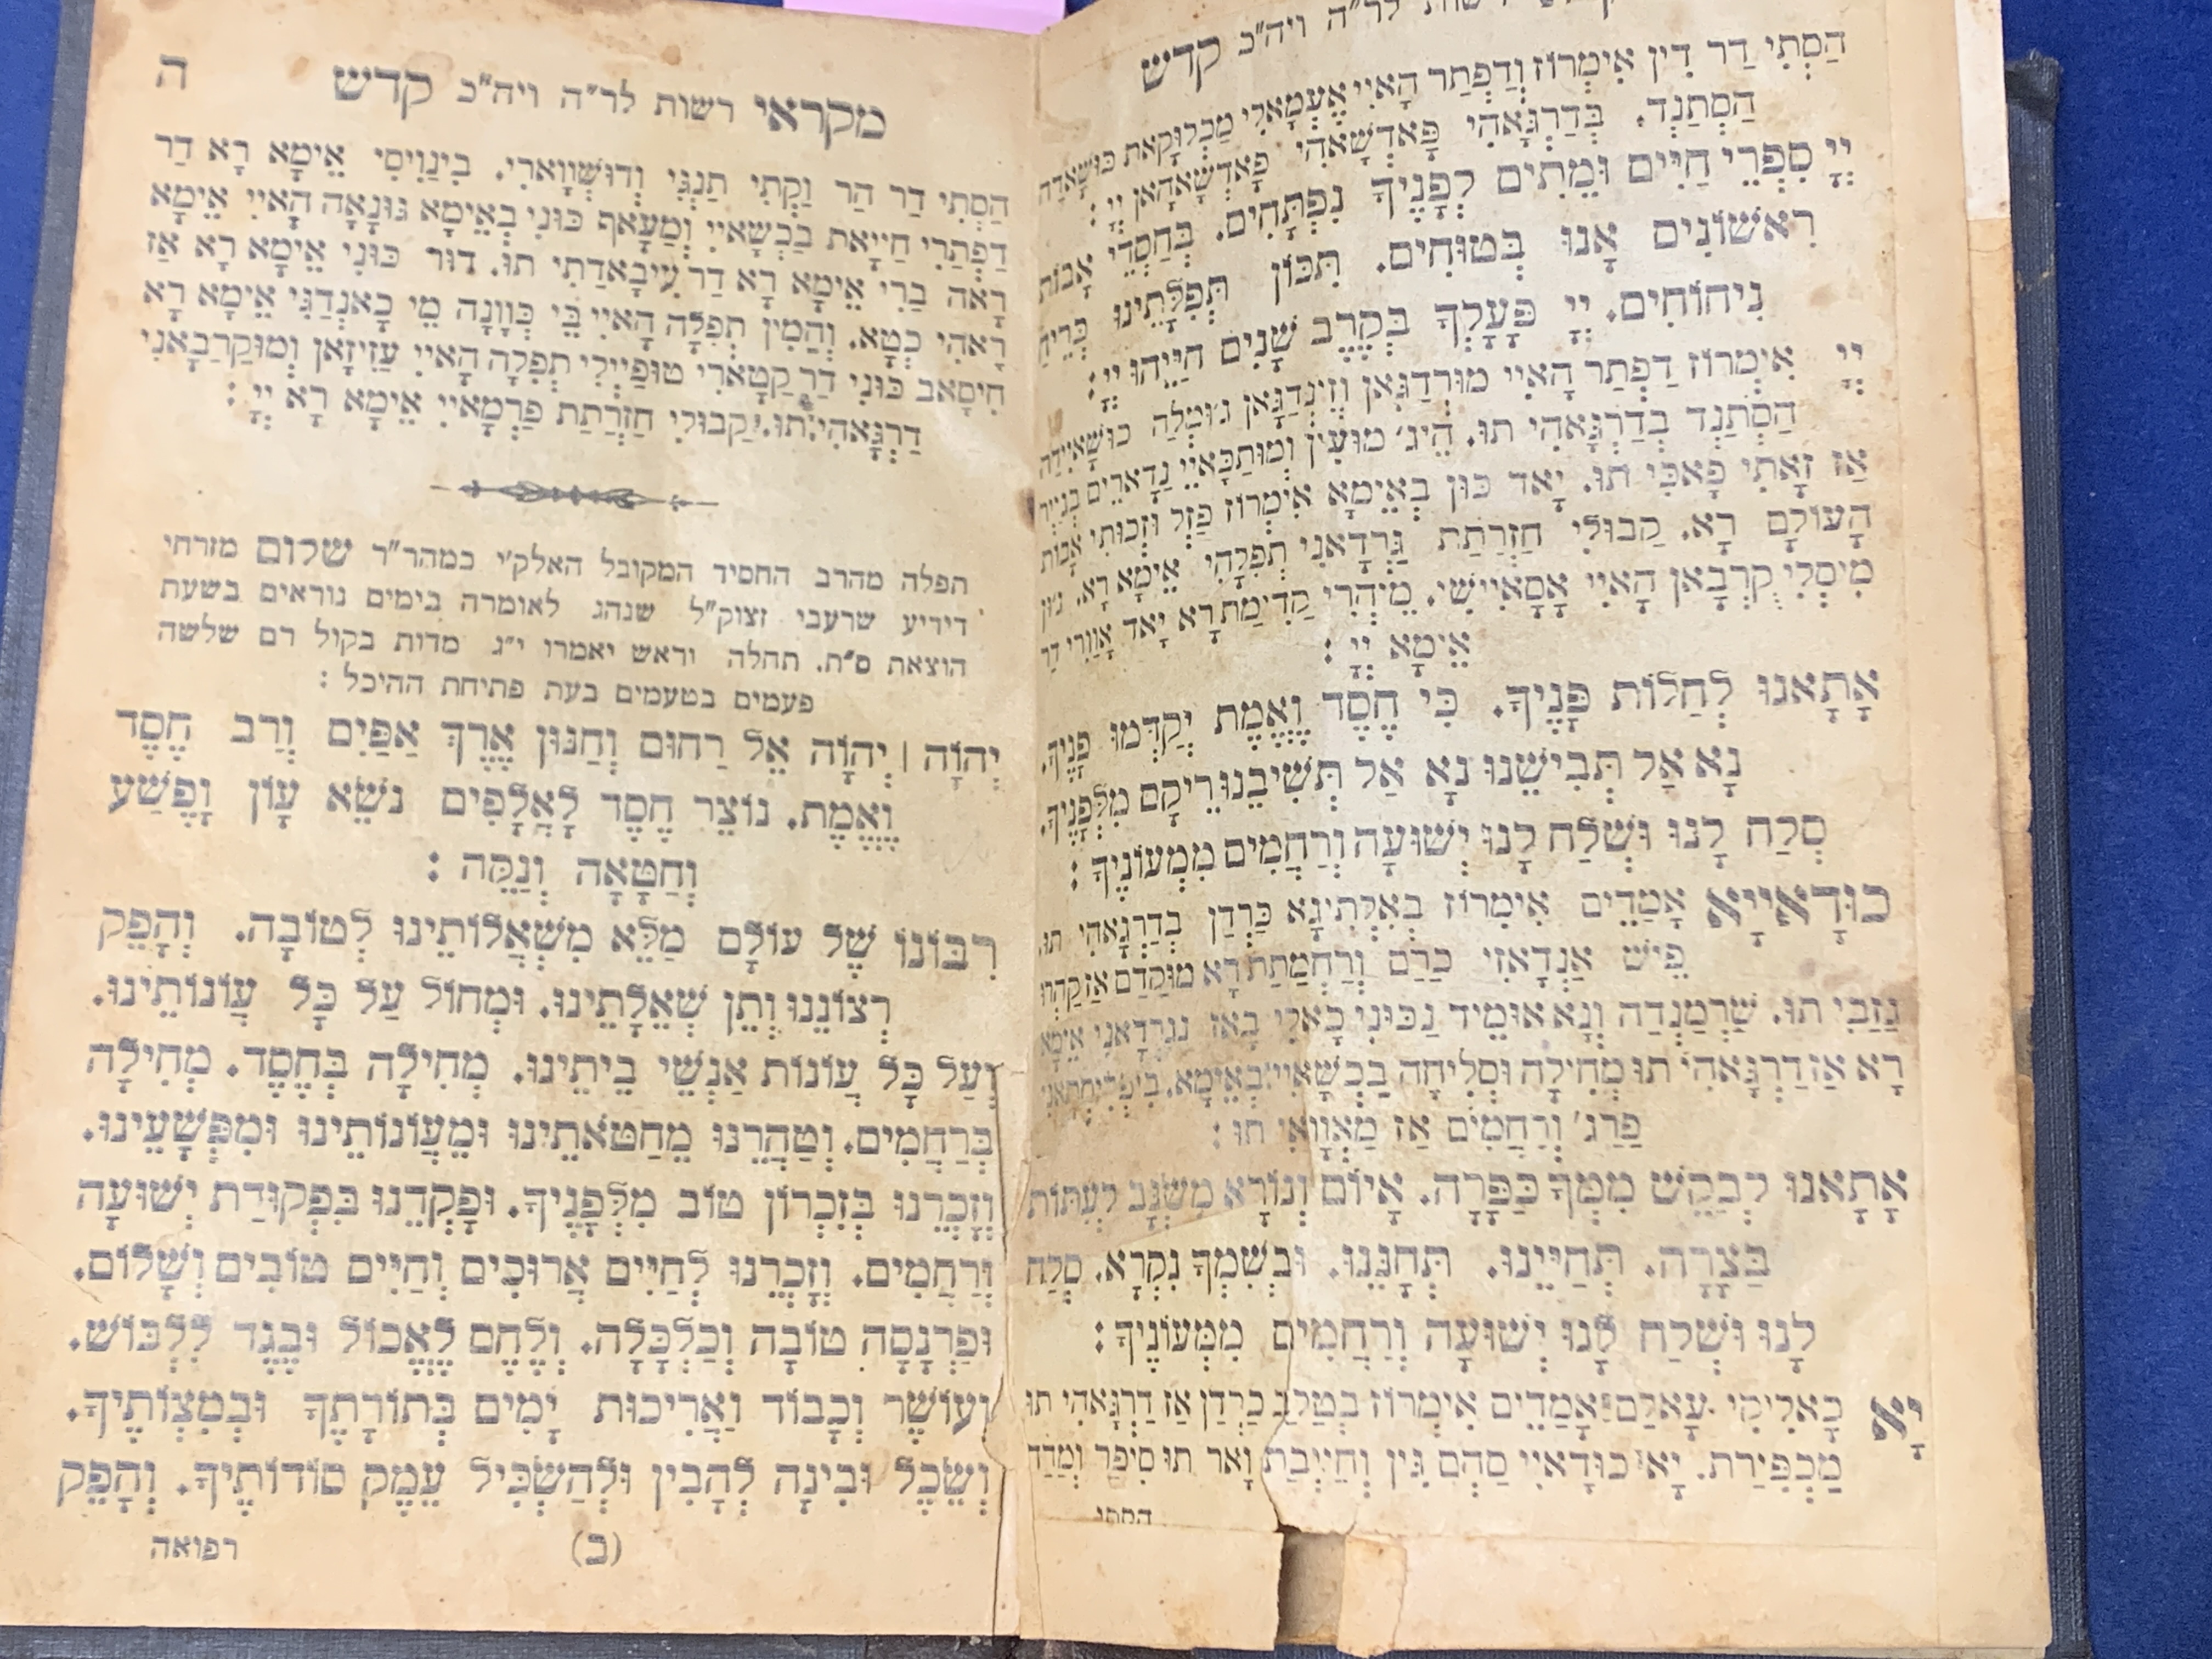 רשות לר״ה ויה״כ קדש
הַסְתִי דַר דִין אִימְרוֹז וְדַפְתַר הָאיִי אֶעְמָאלִי מַכְלוּקָאת כּוּשָׁאדָה
הַסְתַנְד. בְּדַרְגָּאהִי פָּאדְשָׁאהִי פָּאדְשָׁאהָאן יְיָ :
יְיָ סִפְרֵי חַיִּים וּמֵתִים לְפָנֶיךָ נִפְתָּחִים. בְּחַסְדֵי אָבוֹת
רִאשׁוֹנִים אָנוּ בְּטוּחִים. תִּכּוֹן תְּפִלָּתֵינוּ כְּרֵיחַ
נִיחוֹחִים. יְיָ פָּעָלְךָ בְּקֶרֶב שָׁנִים חַיֵּיהוּ יְיָ :
יְיָ אִימְרוֹז דַפְתַר הָאיִי מוּרְדַגָּאן וְזִינְדַגָּאן גּוּמְלַה כּוּשָׁאיִידַה
הַסְתַנְד בְּדַרְגָּאהִי תוּ. הֵיג׳ מוּעִין וְמוּתַכָּאיִי נַדָארֵים בְּגֵייר
אַז זָאתִי פָּאכִּי תוּ. יָאד כּוּן בְּאֵימָא אִימְרוֹז פַזְל וּזְכוּתִי אָבוֹת
הָעוֹלָם רָא. קַבוּלִי חַזְרַתַת גַּרְדָאנִי תְפִלָהִי אֵימָא רָא. גּוּן
מִיסְלִי קָרְבָּאן הָאיִי אָסָאיִישִׁי. מֵיהְרִי קַדִימַת רָא יָאד אָוַורִי דַר
אֵימָא יְיָ :
אָתָאנוּ לְחַלּוֹת פָּנֶיךָ. כִּי חֶסֶד וֶאֱמֶת יְקַדְּמוּ פָנֶיךָ
נָא אַל תְּבִישֵׁנוּ נָא אַל תְּשִׁיבֵנוּ רֵיקָם מִלְּפָנֶיךָ
סְלַח לָנוּ וּשְׁלַח לָנוּ יְשׁוּעָה וְרַחֲמִים מִמְּעוֹנֶיךָ :
כוּדָאיָיא אָמַדֵים אִימְרוֹז בְּאִלְתִיגָא כַּרְדַן בְּדַרְגָּאהִי תוּ
פֵּישׁ אַנְדָאזִי כַּרַם וְרַחְמַתַת רָא מוּקַדַם אַז קַהְרוּ
גַזַבִי תוּ. שַׁרְמַנְדַה וְנָא אוּמֵיד נַכּוּנִי כָאלִי בָאז נַגַרְדָאנִי אֵימָא
רָא אַז דַרְגָּאהִי תוּ מְחִילָה וּסְלִיחָה בַּכְשָׁאיִי בְּאֵימָא. בִּיפִרִיסְתָאנִי
פַרַג׳ וְרַחֲמִים אַז מַאֲוָואִי תוּ :
אָתָאנוּ לְבַקֵּשׁ מִמְּךָ כַּפָּרָה. אָיוֹם וְנוֹרָא מִשְׂגָּב לְעִתּוֹת
בַּצָּרָה. תְּחַיֵּינוּ. תְּחָנֵּנוּ. וּבְשִׁמְךָ נִקְרָא. סְלַח
לָנוּ וּשְׁלַח לָנוּ יְשׁוּעָה וְרַחֲמִים מִמְּעוֹנֶיךָ :
יָא כָאלִיקִי עָאלַם אָמַדֵים אִימְרוֹז בְּטַלַב כַּרְדַן אַז דַרְגָּאהִי תוּ
מַכְפִירַת. יָא כוּדָאיִי סַהְם גִּין וְהַייְבַת וָאר תוּ סִיפַר וּמַדַד
הסתי
מקראי רשות לר״ה ויה״כ קדש ה
הַסְתִי דַר הַר וַקְתִי תַנְגִּי וְדוּשְׁוָוארִי. בִינַוִיסִי אֵימָא רָא דַר
דַפְתַרִי חַייָאת בַּכְשָׁאיִי וְמַעָאף כּוּנִי בְּאֵימָא גּוּנָאה הָאיִי אֵימָא
רָאה בַרִי אֵימָא רָא דַר עִיבָאדַתִי תוּ. דוּר כּוּנִי אֵימָא רָא אַז
רָאהִי כְטָא. וְהַמִין תְפִלָה הָאיִי בֵּי כְּוָונָה מֵי כָאנְדַגִּי אֵימָא רָא
חִיסָאב כּוּנִי דַר קַטָארִי טוּפַיְילִי תְפִלָה הָאיִי עַזִיזָאן וְמוּקַרַבָאנִי
דַרְגָּאהִי תוּ. קַבוּלִי חַזְרַתַת פַרְמָאיִי אֵימָא רָא יְיָ :
תפלה מהרב החסיד המקובל האלק׳י כמהר״ר שלום מזרחי
דידיע שרעבי זצוק״ל שנהג לאומרה בימים נוראים בשעת
הוצאת ס״ת. תחלה וראש יאמרו י״ג מדות בקול רם שלשה
פעמים בטעמים בעת פתיחת ההיכל :
יְהוָֹה | יְהוָֹה אֵל רַחוּם וְחַנּוּן אֶרֶךְ אַפַּיִם וְרַב חֶסֶד
וֶאֱמֶת. נוֹצֵר חֶסֶד לָאֲלָפִים נֹשֵׂא עָוֹן וָפֶשַׁע
וְחַטָּאָה וְנַקֵּה :
רִבּוֹנוֹ שֶׁל עוֹלָם מַלֵּא מִשְׁאֲלוֹתֵינוּ לְטוֹבָה. וְהָפֵק
רְצוֹנֵנוּ וְתֵן שְׁאֵלָתֵינוּ. וּמְחוֹל עַל כָּל עֲוֹנוֹתֵינוּ.
וְעַל כָּל עֲוֹנוֹת אַנְשֵׁי בֵיתֵינוּ. מְחִילָה בְּחֶסֶד. מְחִילָה
בְּרַחֲמִים. וְטַהֲרֵנוּ מֵחַטֹּאתֵינוּ וּמֵעֲוֹנוֹתֵינוּ וּמִפְּשָׁעֵינוּ.
וְזָכְרֵנוּ בְּזִכְרוֹן טוֹב מִלְּפָנֶיךָ. וּפָקְדֵנוּ בִּפְקוּדַת יְשׁוּעָה
וְרַחֲמִים. וְזָכְרֵנוּ לְחַיִּים אֲרוּכִים וְחַיִּים טוֹבִים וְשָׁלוֹם.
וּפַרְנָסָה טוֹבָה וְכַלְכָּלָה. וְלֶחֶם לֶאֱכוֹל וּבֶגֶד לִלְבּוֹשׁ.
וְעוֹשֶׁר וְכָבוֹד וַאֲרִיכוּת יָמִים בְּתוֹרָתֶךָ וּבְמִצְוֹתֶיךָ.
וְשֵׂכֶל וּבִינָה לְהָבִין וּלְהַשְׂכִּיל עֵמֶק סוֹדוֹתֶיךָ. וְהָפֵק
(ב) רפואה